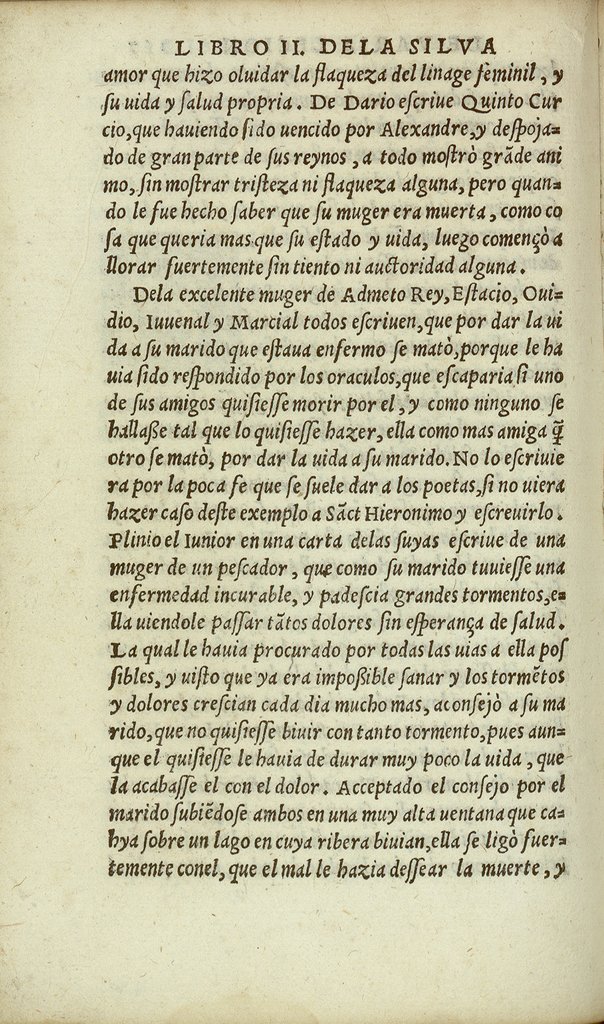 LIBRO II. DELA SILVA
amor que hizo oluidar la flaqueza del linage feminil, y
ſu uida y ſalud propria. De Dario eſcriue Quinto Cur
cio, que hauiendo ſido uencido por Alexandre, y deſpoja=
do de gran parte de ſus reynos, a todo moſtrò grãde ani
mo, ſin moſtrar triſteza ni flaqueza alguna, pero quan=
do le fue hecho ſaber que ſu muger era muerta, como co
ſa que queria mas que ſu eſtado y uida, luego començò a
llorar fuertemente ſin tiento ni auctoridad alguna.
Dela excelente muger de Admeto Rey, Eſtacio, Oui=
dio, Iuuenal y Marcial todos eſcriuen, que por dar la ui
da a ſu marido que eſtaua enfermo ſe matò, porque le ha
uia ſido reſpondido por los oraculos, que eſcaparia ſi uno
de ſus amigos quiſieſſe morir por el, y como ninguno ſe
hallaße tal que lo quiſieſſe hazer, ella como mas amiga q̃
otro ſe matò, por dar la uida a ſu marido. No lo eſcriuie
ra por la poca fe que ſe ſuele dar a los poetas, ſi no uiera
hazer caſo deſte exemplo a Sãct Hieronimo y eſcreuirlo.
Plinio el Iunior en una carta delas ſuyas eſcriue de una
muger de un peſcador, que como ſu marido tuuieſſe una
enfermedad incurable, y padeſcia grandes tormentos, e=
lla uiendole paſſar tãtos dolores ſin eſperança de ſalud.
La qual le hauia procurado por todas las uias a ella poſ
ſibles, y uiſto que ya era impoßible ſanar y los tormẽtos
y dolores creſcian cada dia mucho mas, aconſejò a ſu ma
rido, que no quiſieſſe biuir con tanto tormento, pues aun=
que el quiſieſſe le hauia de durar muy poco la uida, que
la acabaſſe el con el dolor. Acceptado el conſejo por el
marido ſubiẽdoſe ambos en una muy alta uentana que ca=
hya ſobre un lago en cuya ribera biuian, ella ſe ligò fuer=
temente conel, que el mal le hazia deſſear la muerte, y